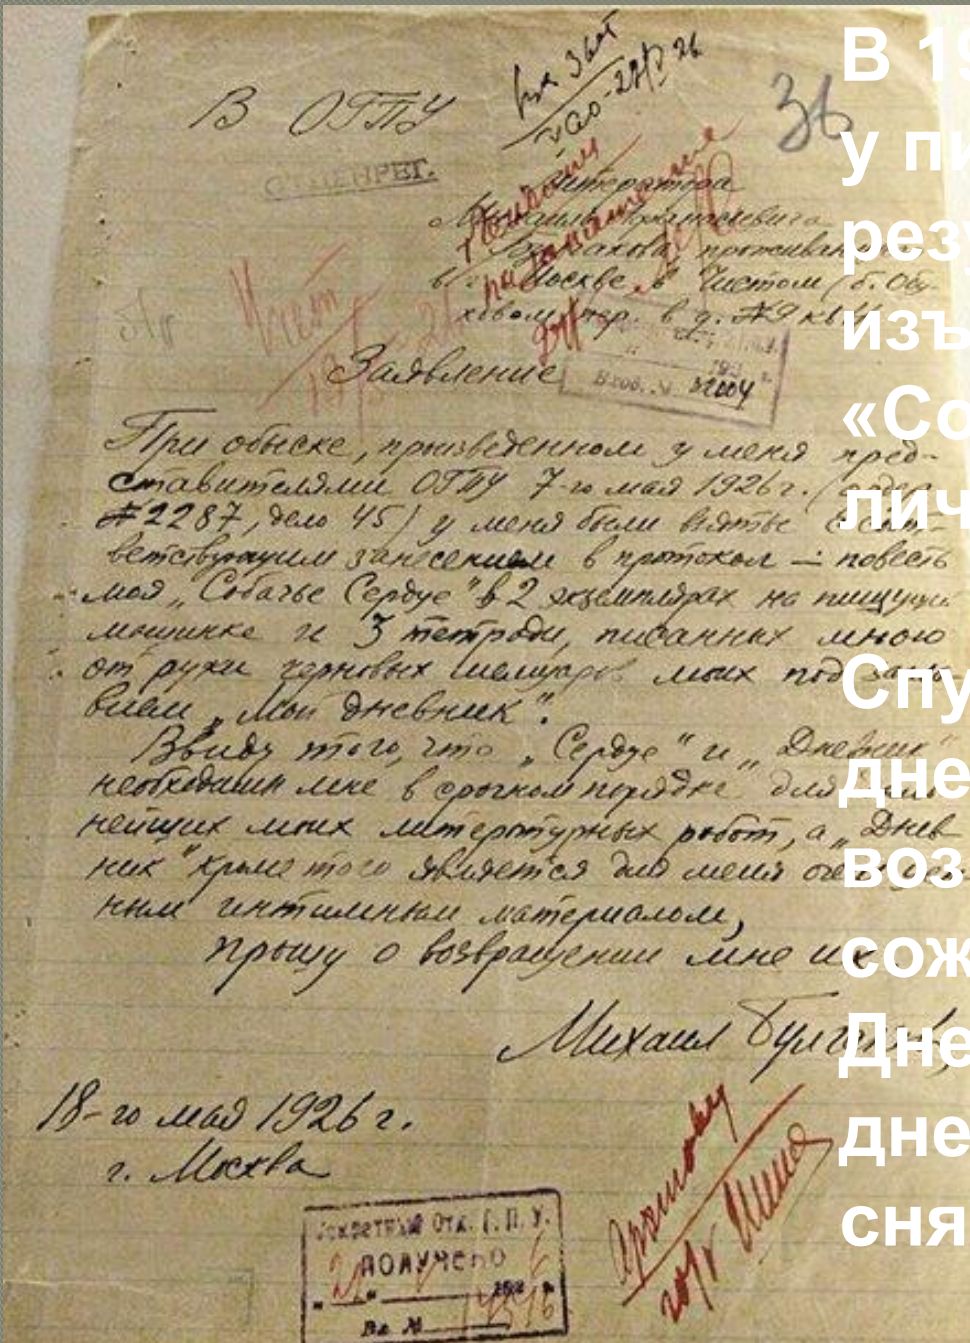 В ОГПУ
36
Литератора
Михаила Афанасьевича
Булгакова, проживающего
в г. Москве, в Чистом (б. Обу-
ховом) пер. в д. №9 кв. 4
Заявление
При обыске, произведенном у меня пред-
ставителями ОГПУ 7-го мая 1926 г. (ордер
№2287, дело 45) у меня были взяты с соот-
ветствующим занесением в протокол — повесть
моя „Собачье Сердце" в 2 экземплярах на пишущей
машинке и 3 тетради, писанных мною
от руки черновых мемуаров моих под загла-
вием „Мой дневник".
Ввиду того, что „Сердце" и „Дневник"
необходимы мне в срочном порядке для даль-
нейших моих литературных работ, а „Днев-
ник" кроме того является для меня очень цен-
ным интимным материалом,
прошу о возвращении мне их
Михаил Булгаков
18-го мая 1926 г.
г. Москва
Секретный Отд. Г.П.У.
ПОЛУЧЕНО
Вх №
В 19
у пи
резу
изъ
«Со
лич
Спу
дне
воз
сож
Дне
дне
сня